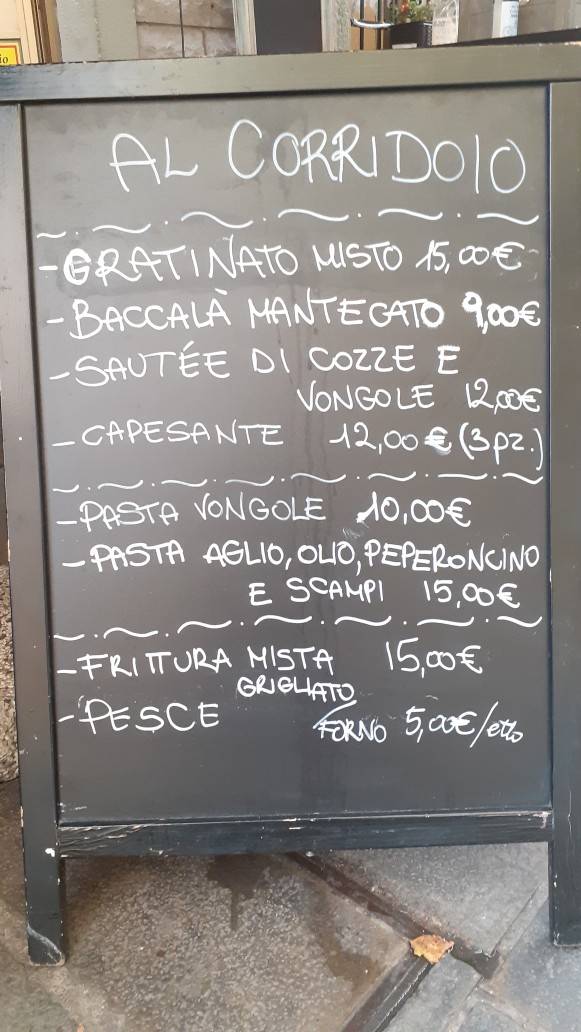 io
AL CORRIDOIO
-GRATINATO MISTO 15,00€
-BACCALÀ MANTECATO 9,00€
-SAUTÉE DI COZZE E
VONGOLE 12,00€
-CAPESANTE 12,00€ (3pz.)
-PASTA VONGOLE 10,00€
-PASTA AGLIO, OLIO, PEPERONCINO
E SCAMPI 15,00€
-FRITTURA MISTA 15,00€
GRIGLIATO
-PESCE /FORNO 5,00€/etto